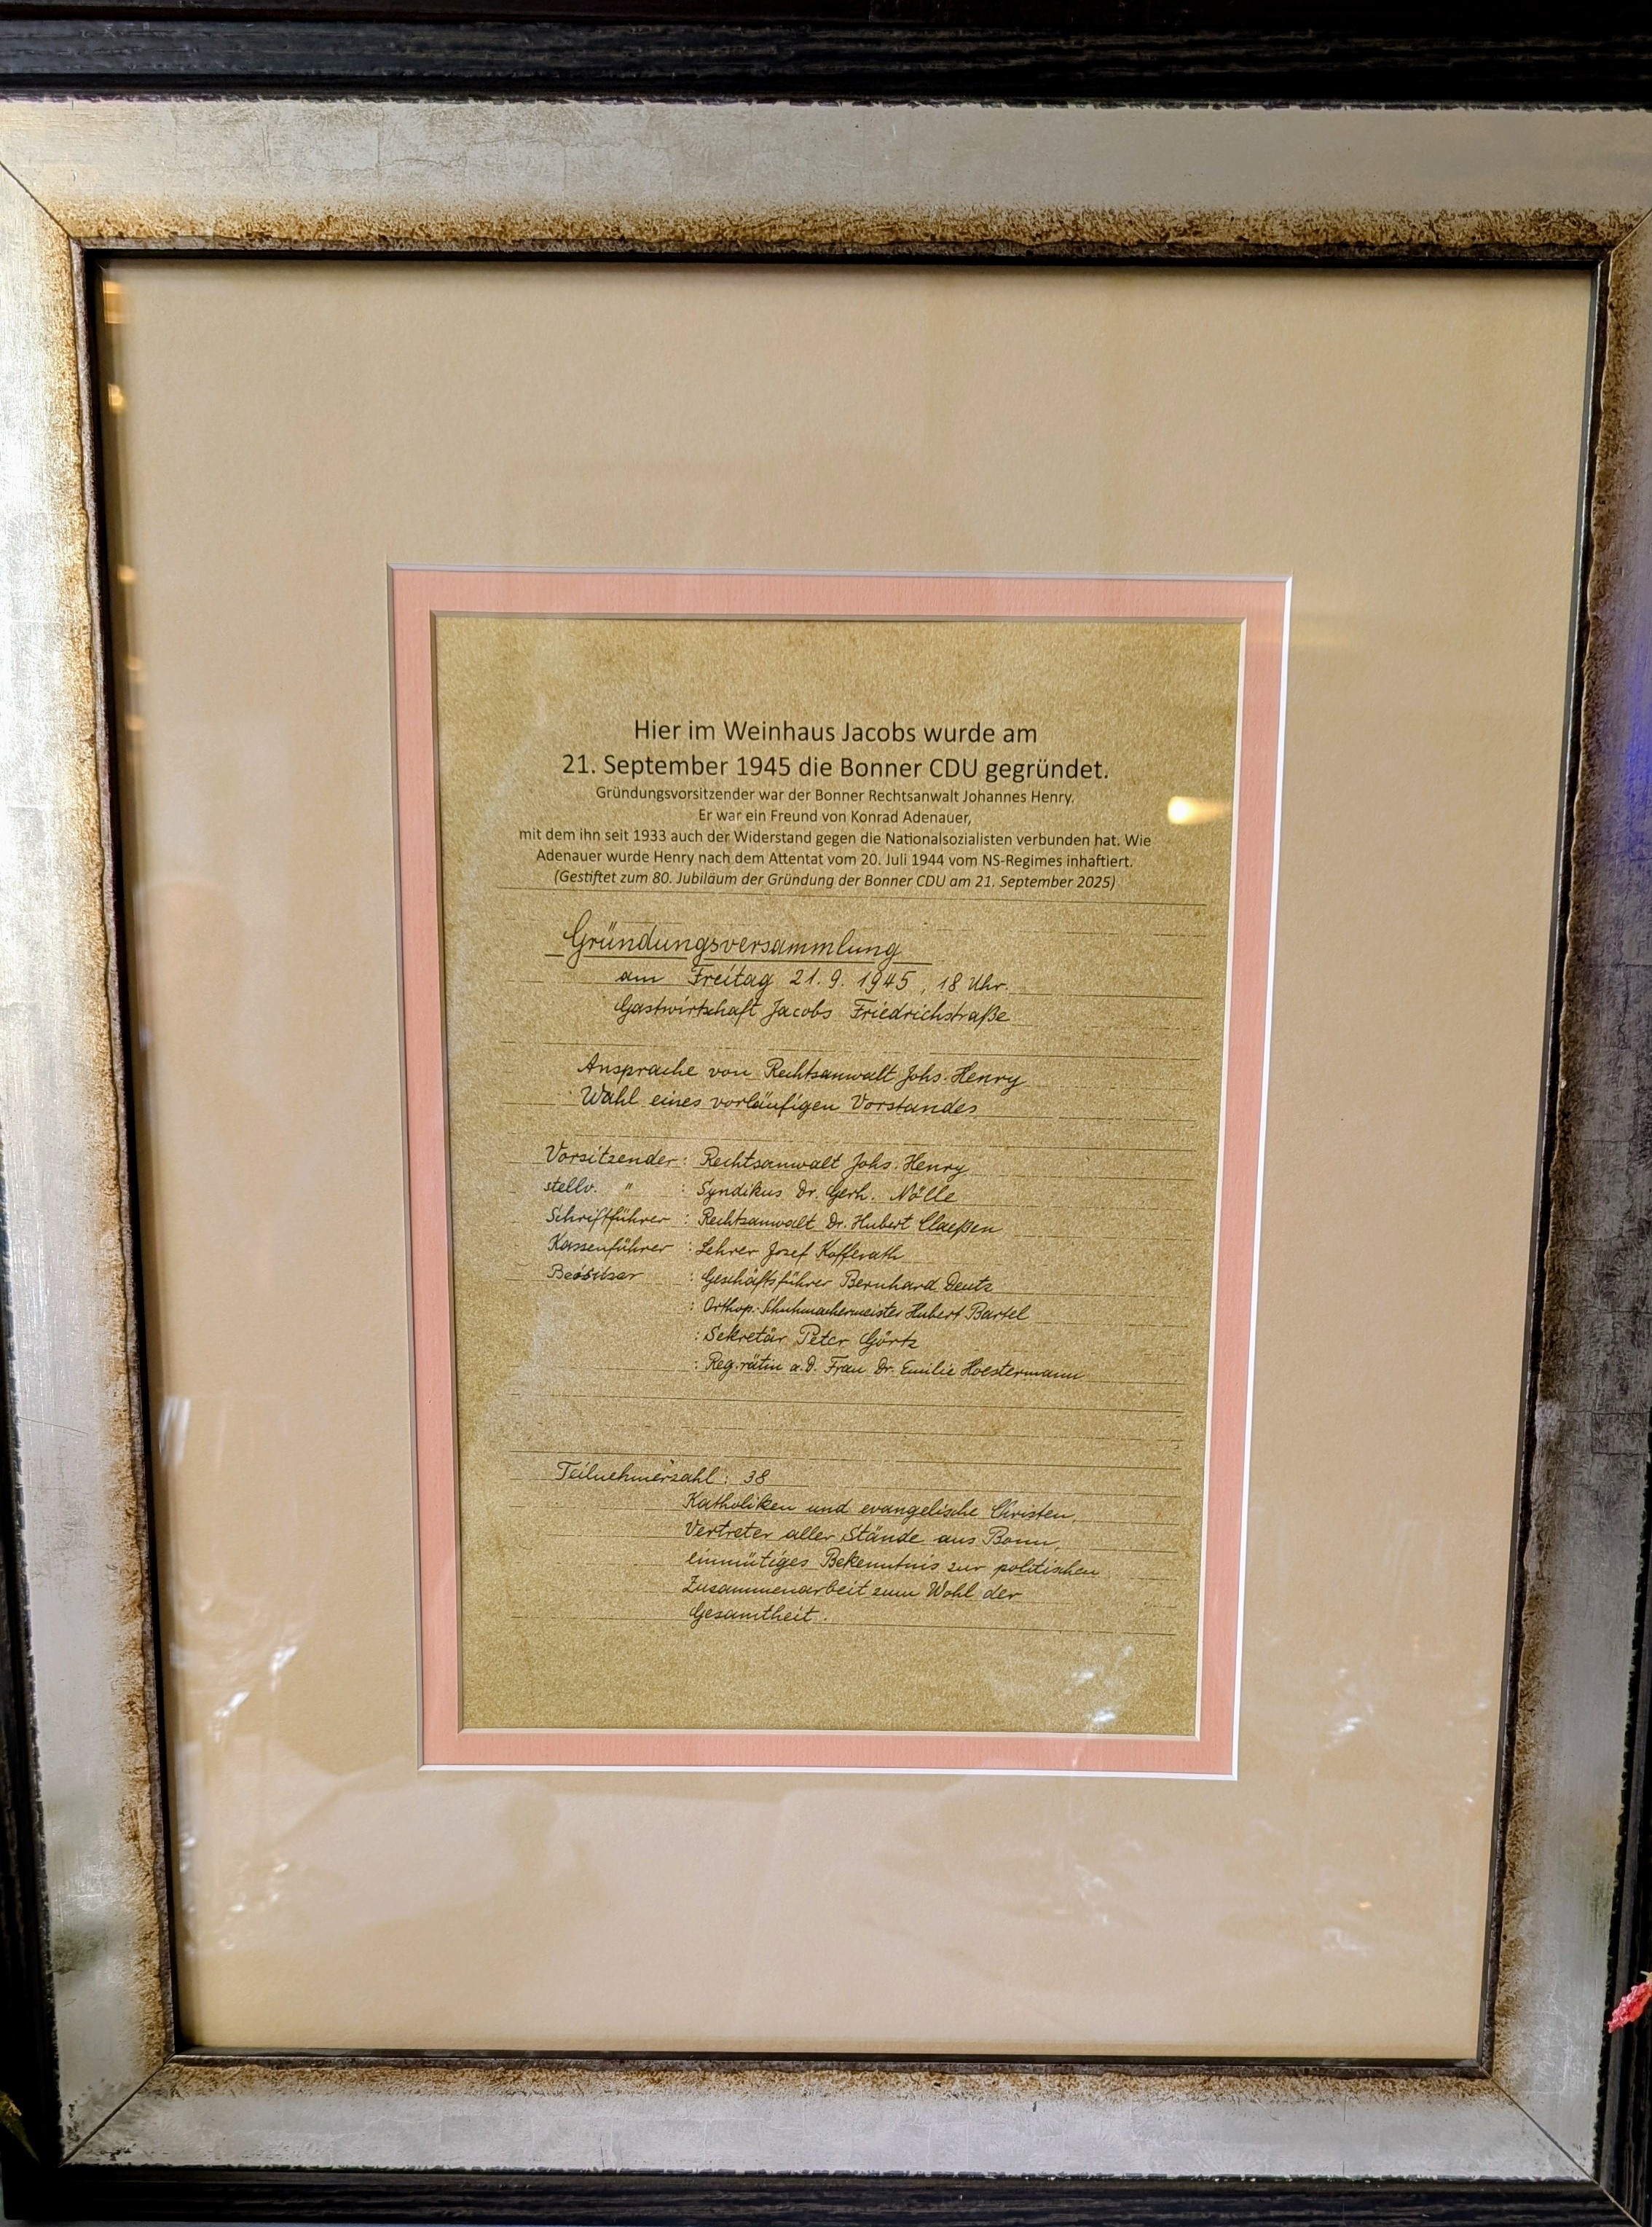 Hier im Weinhaus Jacobs wurde am
21. September 1945 die Bonner CDU gegründet.
Gründungsvorsitzender war der Bonner Rechtsanwalt Johannes Henry.
Er war ein Freund von Konrad Adenauer,
mit dem ihn seit 1933 auch der Widerstand gegen die Nationalsozialisten verbunden hat. Wie
Adenauer wurde Henry nach dem Attentat vom 20. Juli 1944 vom NS-Regimes inhaftiert.
(Gestiftet zum 80. Jubiläum der Gründung der Bonner CDU am 21. September 2025)
Gründungsversammlung
am Freitag 21.9.1945, 18 Uhr.
Gastwirtschaft Jacobs Friedrichstraße
Ansprache von Rechtsanwalt Johs. Henry
Wahl eines vorläufigen Vorstandes
Vorsitzender: Rechtsanwalt Johs. Henry
stellv. " : Syndikus Dr. Gerh. Nölle
Schriftführer : Rechtsanwalt Dr. Hubert Claeßen
Kassenführer : Lehrer Josef Kofferath
Beisitzer : Geschäftsführer Bernhard Deutz
: Orthop. Schuhmachermeister Hubert Bartel
: Sekretär Peter Görtz
: Reg.rätin a.D. Frau Dr. Emilie Hoestermann
Teilnehmerzahl: 38
Katholiken und evangelische Christen,
Vertreter aller Stände aus Bonn,
einmütiges Bekenntnis zur politischen
Zusammenarbeit zum Wohl der
Gesamtheit.